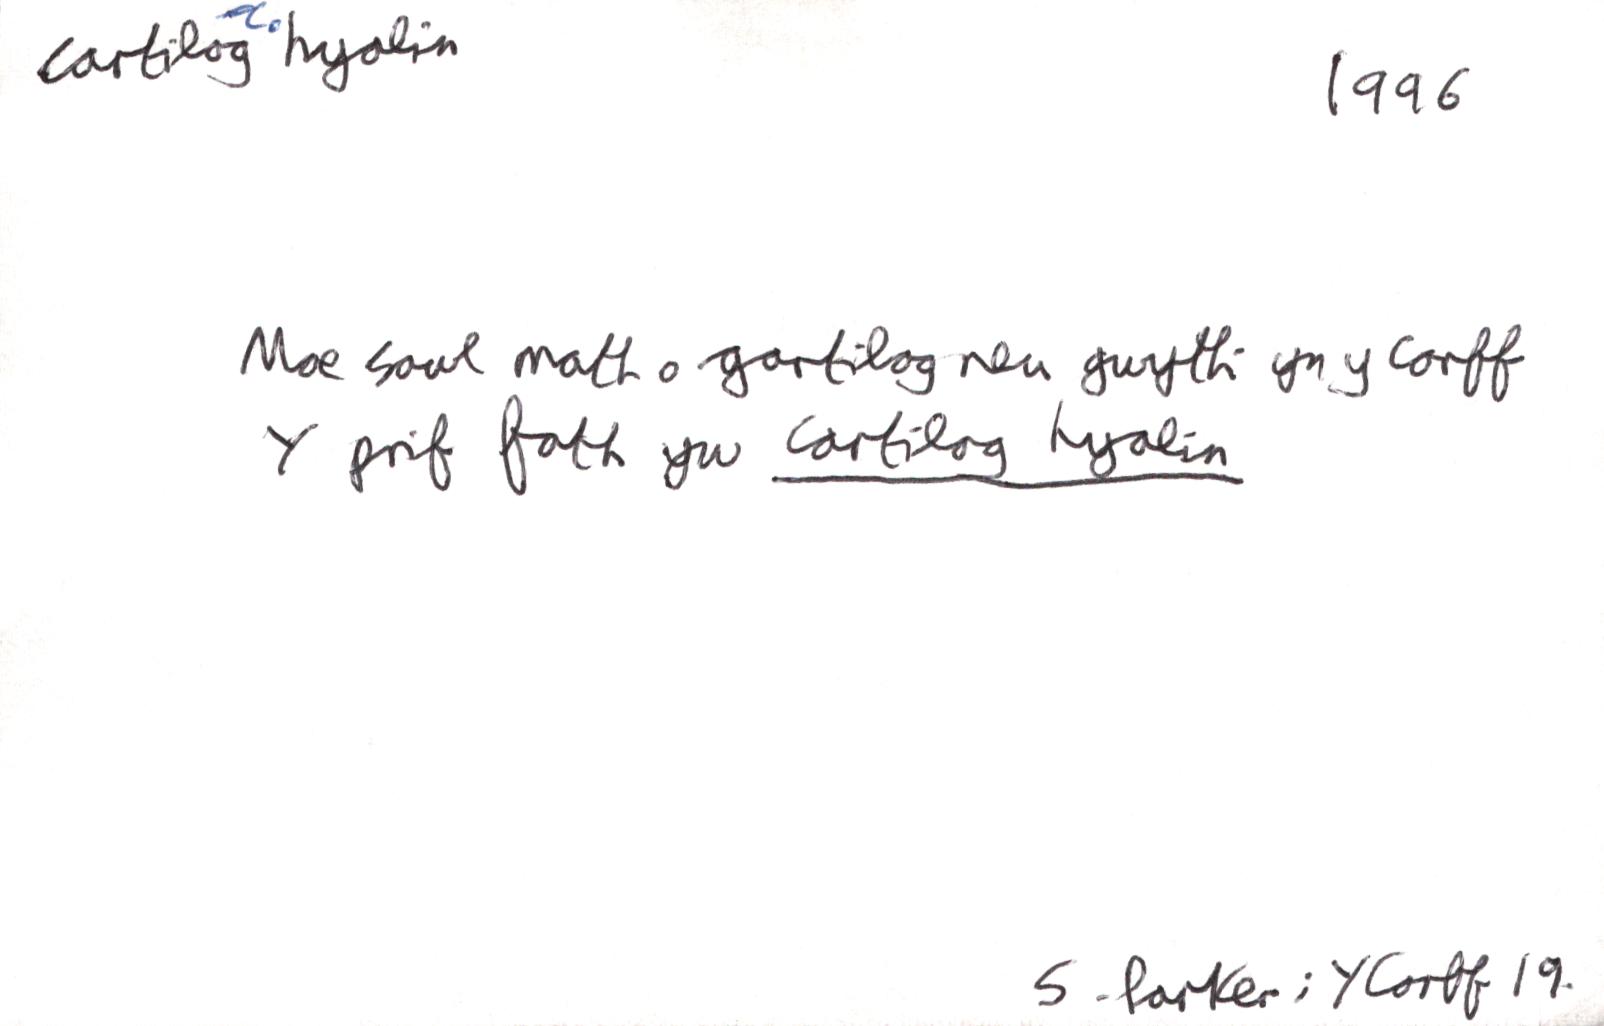 cartilag hyalin
1996
Mae sawl math o gartilag neu gwythi yn y corff
Y prif fath yw cartilag hyalin
S. Parker: Y Corff 19.